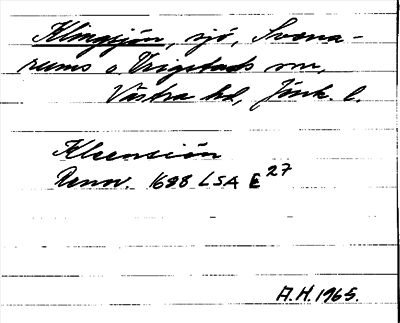 Klingsjön, sjö, Svena-
rums o. Vrigstads snr,
Västra hd, Jönk. l.
Kleensiön
Renov. 1688 LSA E 27
A.H. 1965.